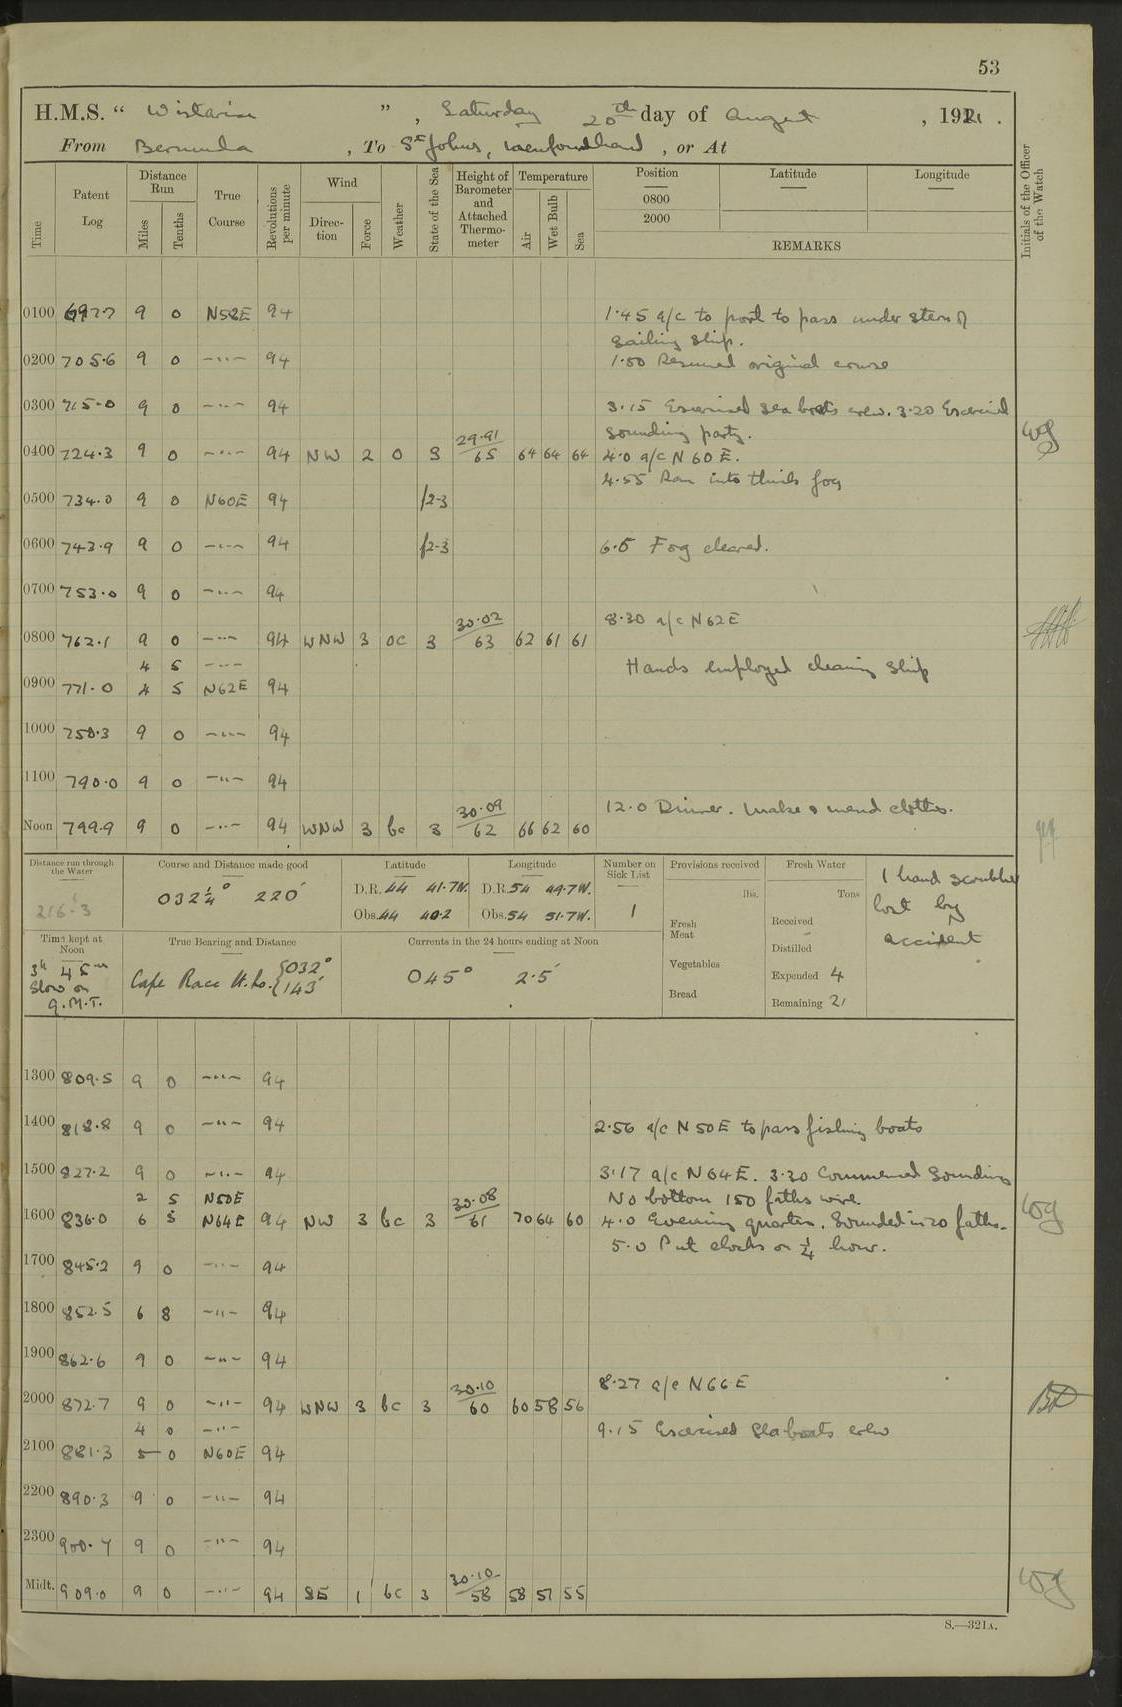 53
H.M.S. " Wistaria ", Saturday 20th day of August, 1921.
From Bermuda, To St Johns, Newfoundland, or At
Time Patent Log Distance Run Miles Tenths True Course Revolutions per minute Wind Direction Force Weather State of the Sea Height of Barometer and Attached Thermometer Temperature Air Wet Bulb Sea Position 0800 2000 Latitude Longitude
REMARKS
Initials of the Officer of the Watch
0100 697.7 9 0 N52E 94 1.45 a/c to port to pass under stern of
sailing ship.
0200 705.6 9 0 -"- 94 1.50 Resumed original course
0300 715.0 9 0 -"- 94 3.15 Exercised sea boats crew. 3.20 Exercised
sounding party.
0400 724.3 9 0 -"- 94 NW 2 0 3 29.91/65 64 64 64 4.0 a/c N 60 E.
4.55 Ran into thick fog
0500 734.0 9 0 N60E 94 f2-3
0600 743.9 9 0 -"- 94 f2-3 6.5 Fog cleared.
0700 753.0 9 0 -"- 94
8.30 a/c N62E
0800 762.1 9 0 -"- 94 WNW 3 oc 3 30.02/63 62 61 61
4 5 -"- Hands employed cleaning ship
0900 771.0 4 5 N62E 94
1000 780.3 9 0 -"- 94
1100 790.0 9 0 -"- 94
12.0 Dinner. Make & mend clothes.
Noon 799.9 9 0 -"- 94 WNW 3 bc 3 30.09/62 66 62 60
Distance run through the Water 216.3
Course and Distance made good 032¼° 220'
Latitude D.R. 44 41.7N. Obs. 44 40.2
Longitude D.R. 54 49.7W. Obs. 54 51.7W.
Number on Sick List 1
Provisions received lbs.
Fresh Meat
Vegetables
Bread
Fresh Water Tons
Received
Distilled -
Expended 4
Remaining 21
1 hand scrubber
lost by
accident
Time kept at Noon 3h 45m
Slow on
G.M.T.
True Bearing and Distance Cape Race Lt. Ho. {032° 143'
Currents in the 24 hours ending at Noon 045° 2.5'
1300 809.5 9 0 -"- 94
1400 818.8 9 0 -"- 94 2.56 a/c N 50E to pass fishing boats
1500 827.2 9 0 -"- 94 3.17 a/c N64E. 3.20 Commenced Sounding
2 5 N50E No bottom 150 faths wire
1600 836.0 6 5 N64E 94 NW 3 bc 3 30.08/61 70 64 60 4.0 Evening quarters. Sounded in 20 faths.
5.0 Put clocks on ¼ hour.
1700 845.2 9 0 -"- 94
1800 852.5 6 8 -"- 94
1900 862.6 9 0 -"- 94
8.27 a/c N66E
2000 872.7 9 0 -"- 94 WNW 3 bc 3 30.10/60 60 58 56
4 0 -"- 9.15 Exercised Sea boats crew
2100 881.3 5 0 N60E 94
2200 890.3 9 0 -"- 94
2300 900.4 9 0 -"- 94
Midt. 909.0 9 0 -"- 94 SE 1 bc 3 30.10/58 58 57 55
S.—321A.